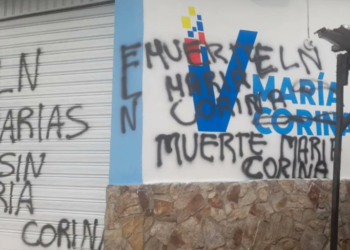 LN
ARIAS
SIN
RIA
CORINA
ELN
MUERTE ELN
MARIA
CORINA
V
MARÍA
CORINA
MUERTE MARIA
CORINA